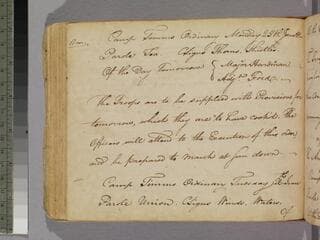 Camp Timms Ordinary Monday 25th June
Parole Tea. CSigns Thorns, Thistles
Of the Day Tomorrow { Major Hardiman
Adjt. Ford
The Troops are to be supplied with Provisions for
tomorrow, which they are to have cooked. The
Officers will attend to the Execution of this order
and be prepared to March at Sun down
Camp Timms Ordinary Tuesday
Parole Union. CSigns Winds. Waters.
Of